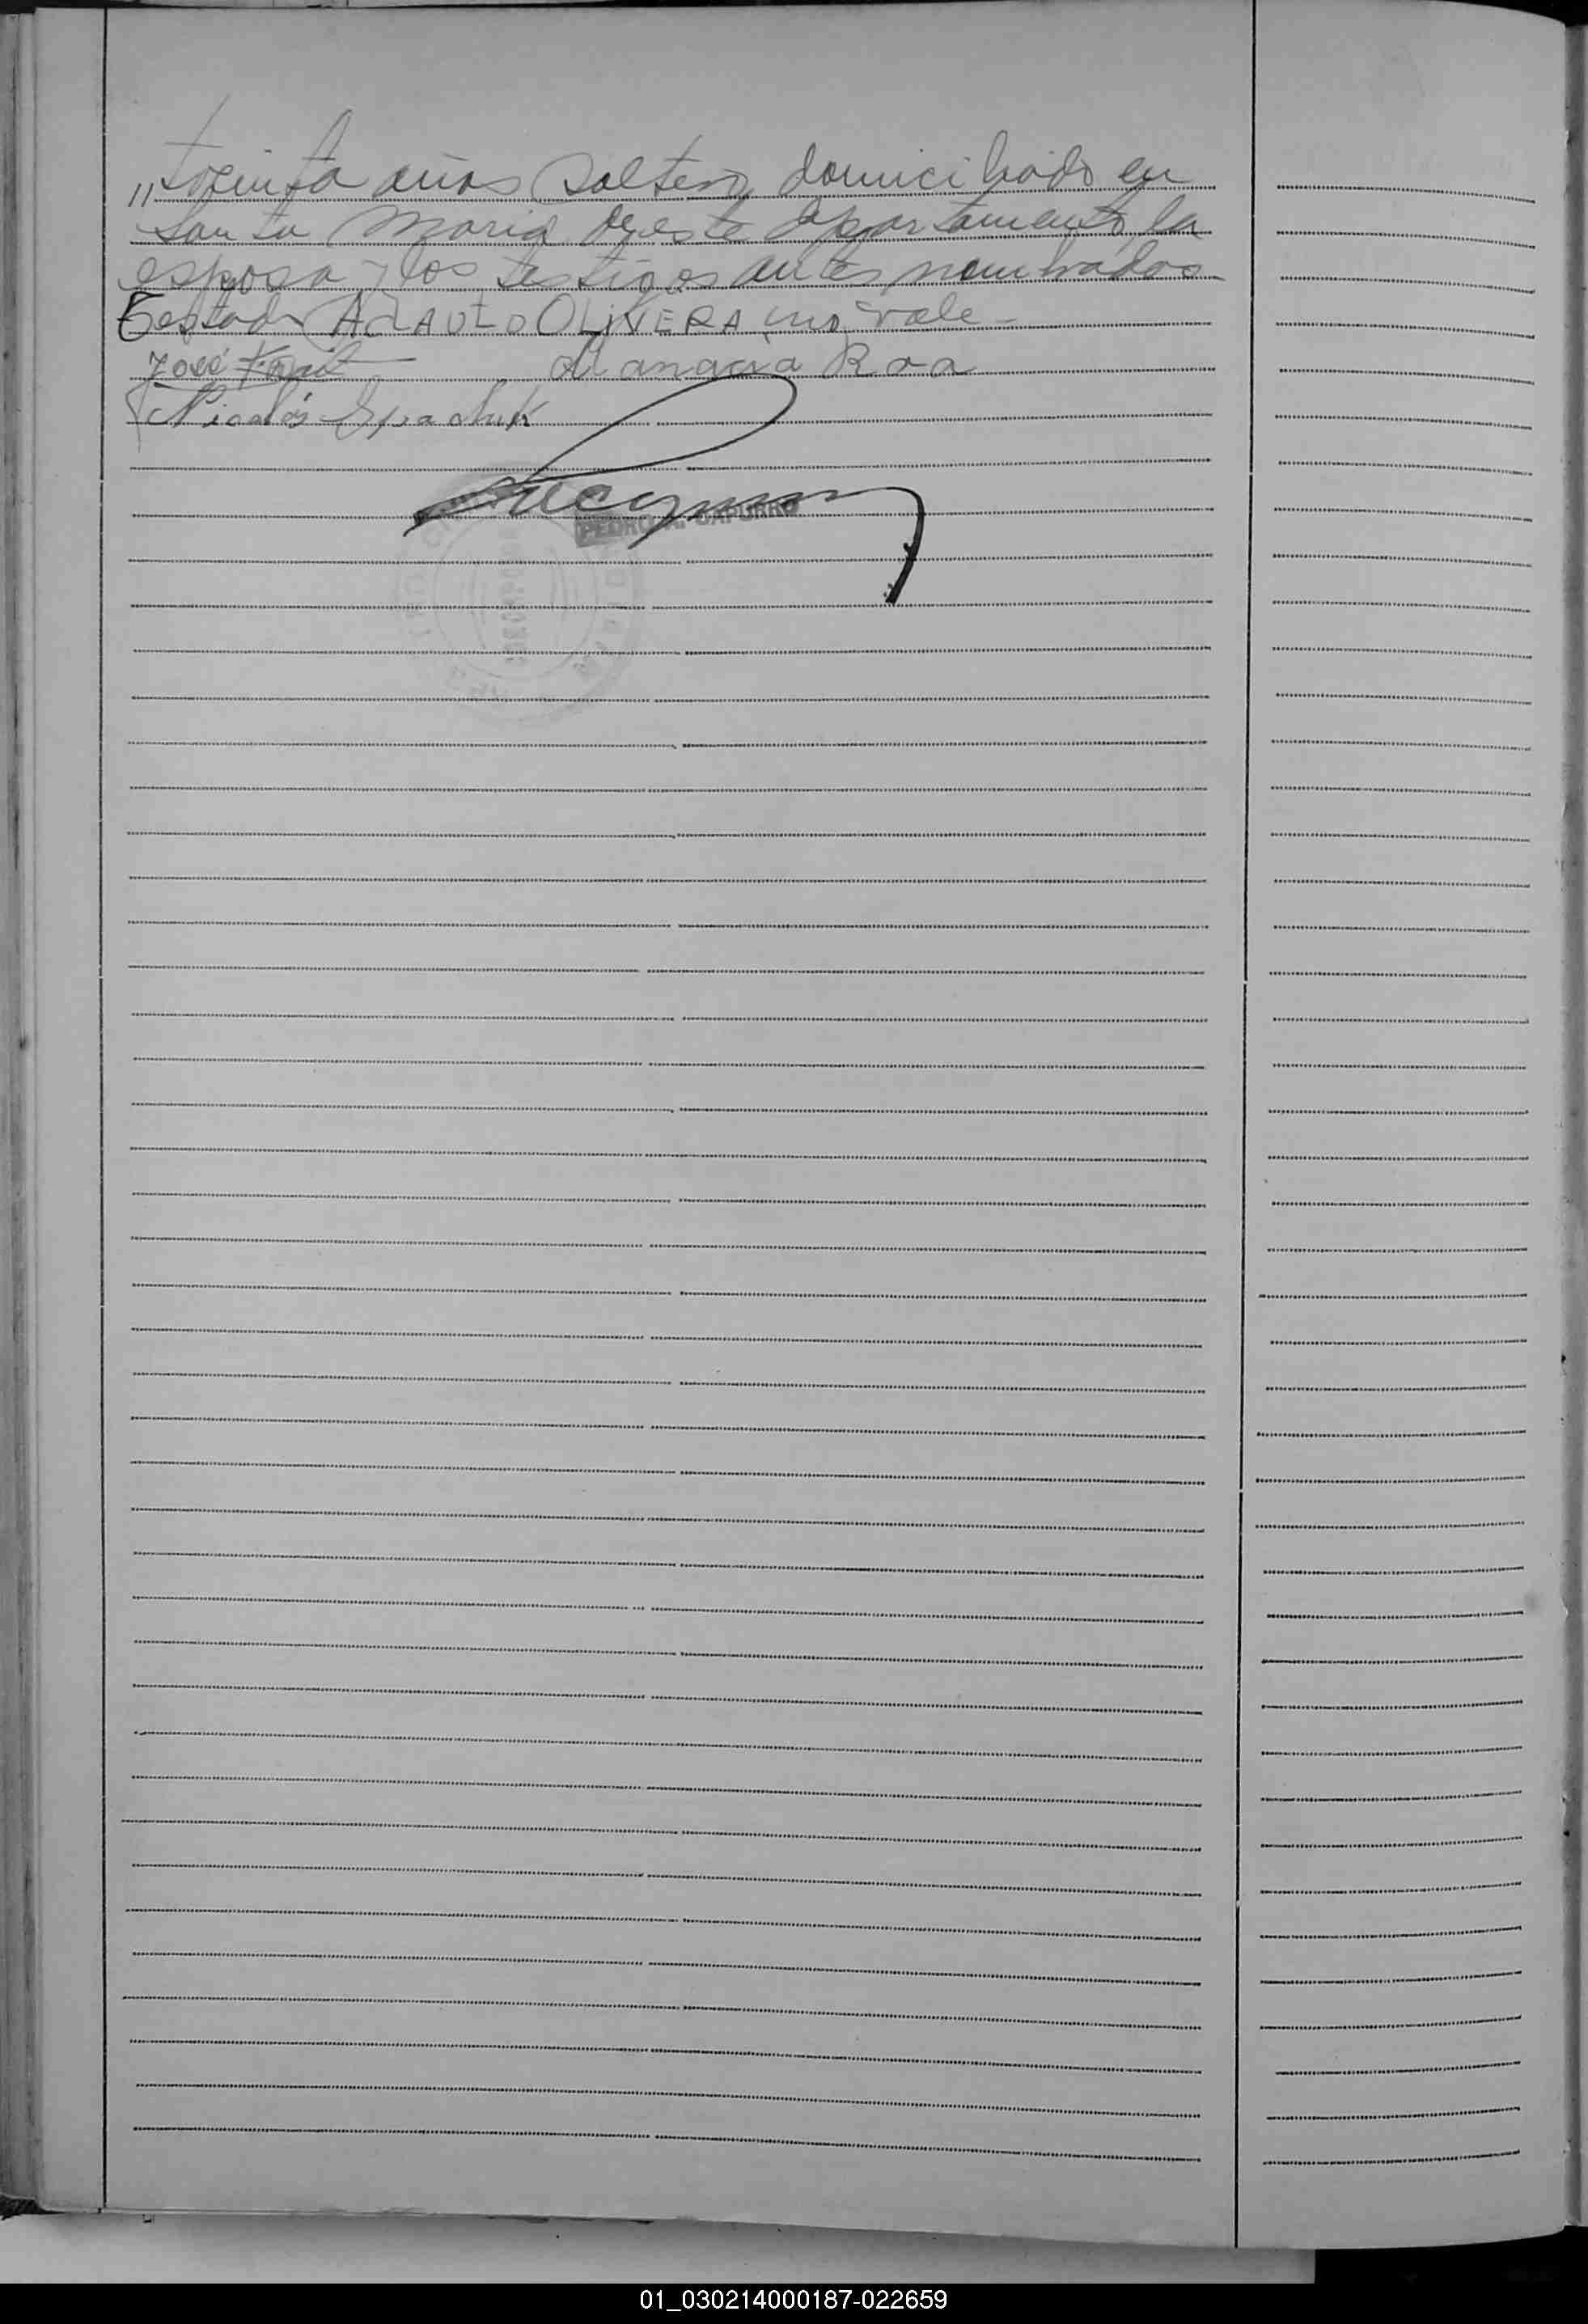 ,, treinta años soltero domiciliado en
Santa Maria de este departamento, la
esposa y los testigos antes nombrados
Testado OLIVERA no vale-
José
Roa
Nicolás
PEDRO A. CAPURRO
01_030214000187-022659